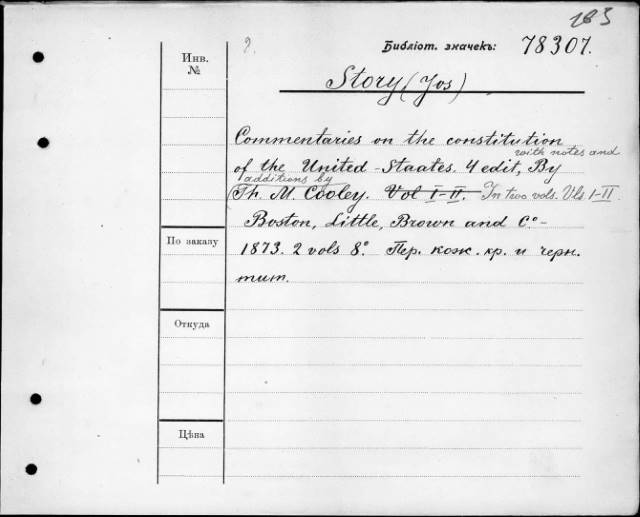 183
2.
Инв.
№
Библіот. значекъ: 78307.
Story (Jos)
Commentaries on the constitution
with notes and
of the United-Staates. 4 edit, By
additions by
(Th. M. Cooley. Vol I-II. In two vols. Vls I-II.
Boston, Little, Brown and Cº-
По заказу
1873. 2 vols 8º. Пер. кож. кр. и черн.
тит.
Откуда
Цѣна